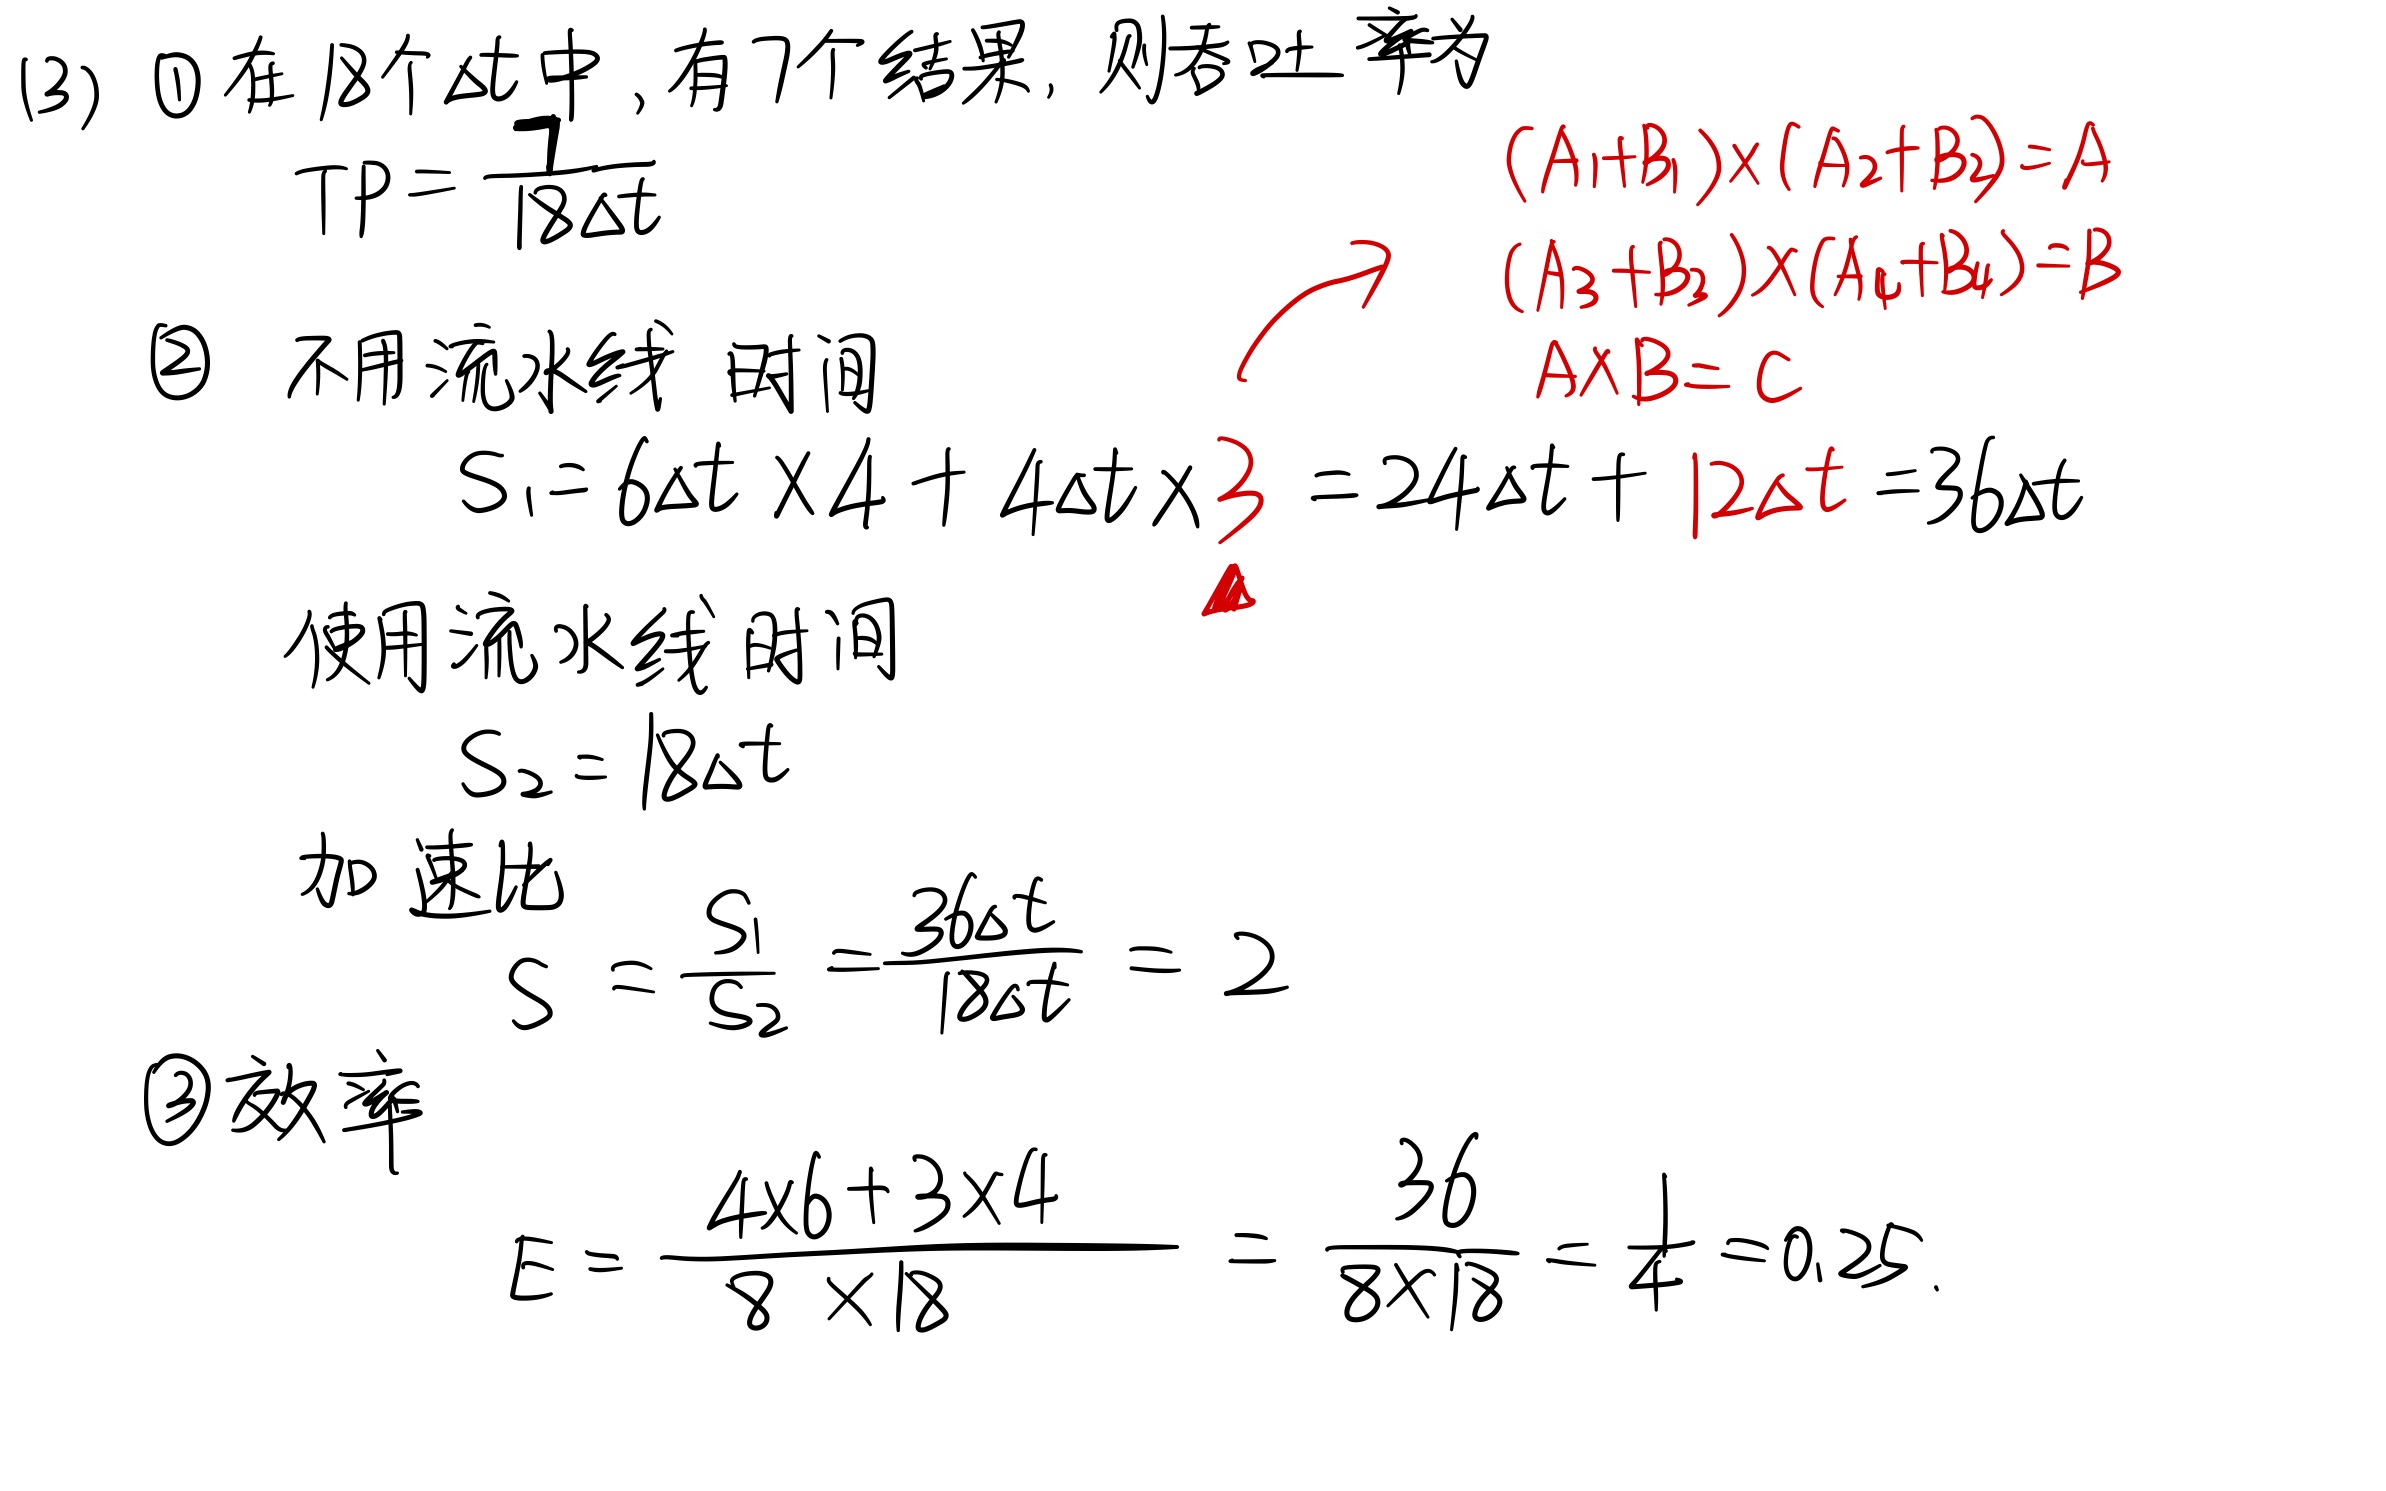 (3) ① 在18个Δt中,有7个结果,则吞吐率为
TP = 7/18Δt
(A1+B1)×(A2+B2)=A
(A3+B3)×(A4+B4)=B
A×B=C
② 不用流水线时间
S1=6Δt×4+4Δt×3=24Δt+12Δt=36Δt
使用流水线时间
S2=18Δt
加速比
S=S1/S2=36Δt/18Δt=2
③效率
E=4×6+3×4/8×18=36/8×18=1/4=0.25.